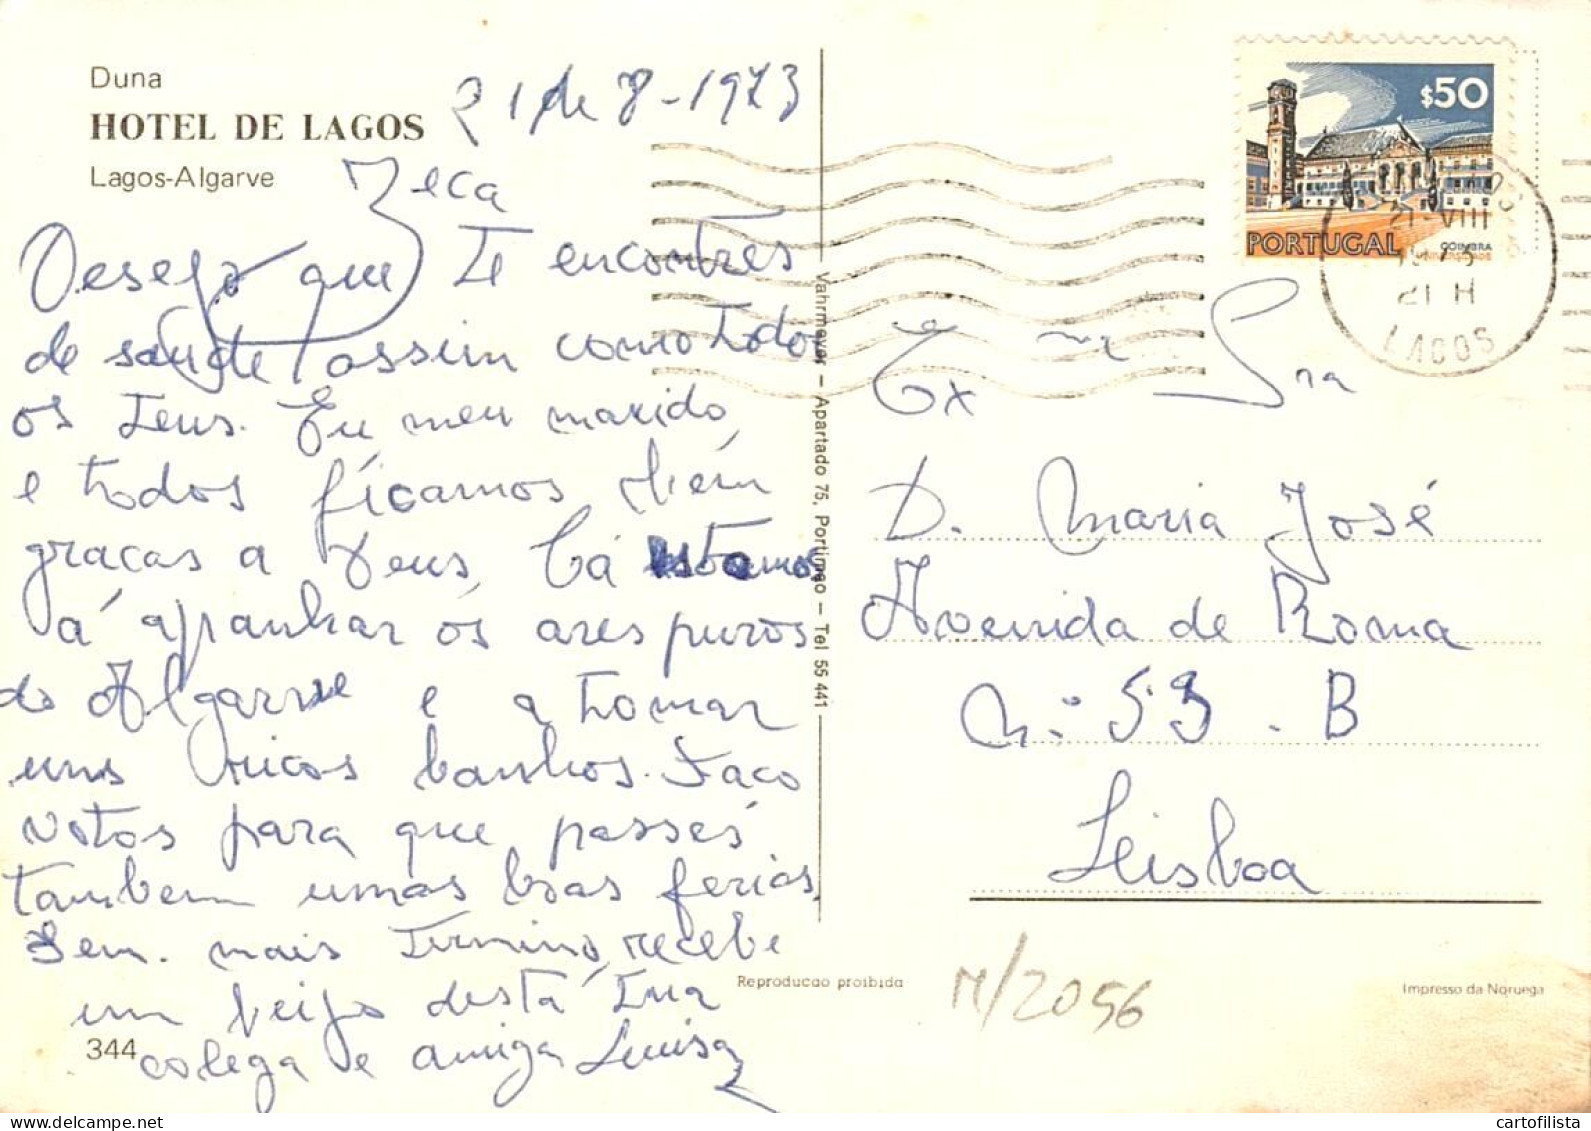 Duna
HOTEL DE LAGOS
Lagos-Algarve
21 de 8-1973
Zeca
Desejo que te encontres
de saude assim como todos
os teus. Eu meu marido,
e todos ficamos bem
graças a Deus, Cá estamos
á apanhar os ares puros
do Algarve e a tomar
uns ricos banhos. Faço
votos para que passes
tambem umas boas ferias,
Sem mais termino, recebe
um beijo desta tua
colega e amiga Luisa
344
Vahrmeyer – Apartado 75, Portimao – Tel 55 441
Reproducao proibida
$50
PORTUGAL
COIMBRA
21 VIII
1973
21 H
LAGOS
Ex ma Sra
D. Maria José
Avenida de Roma
n.º 53 . B
Lisboa
M/2056
Impresso da Noruega
cartofilista